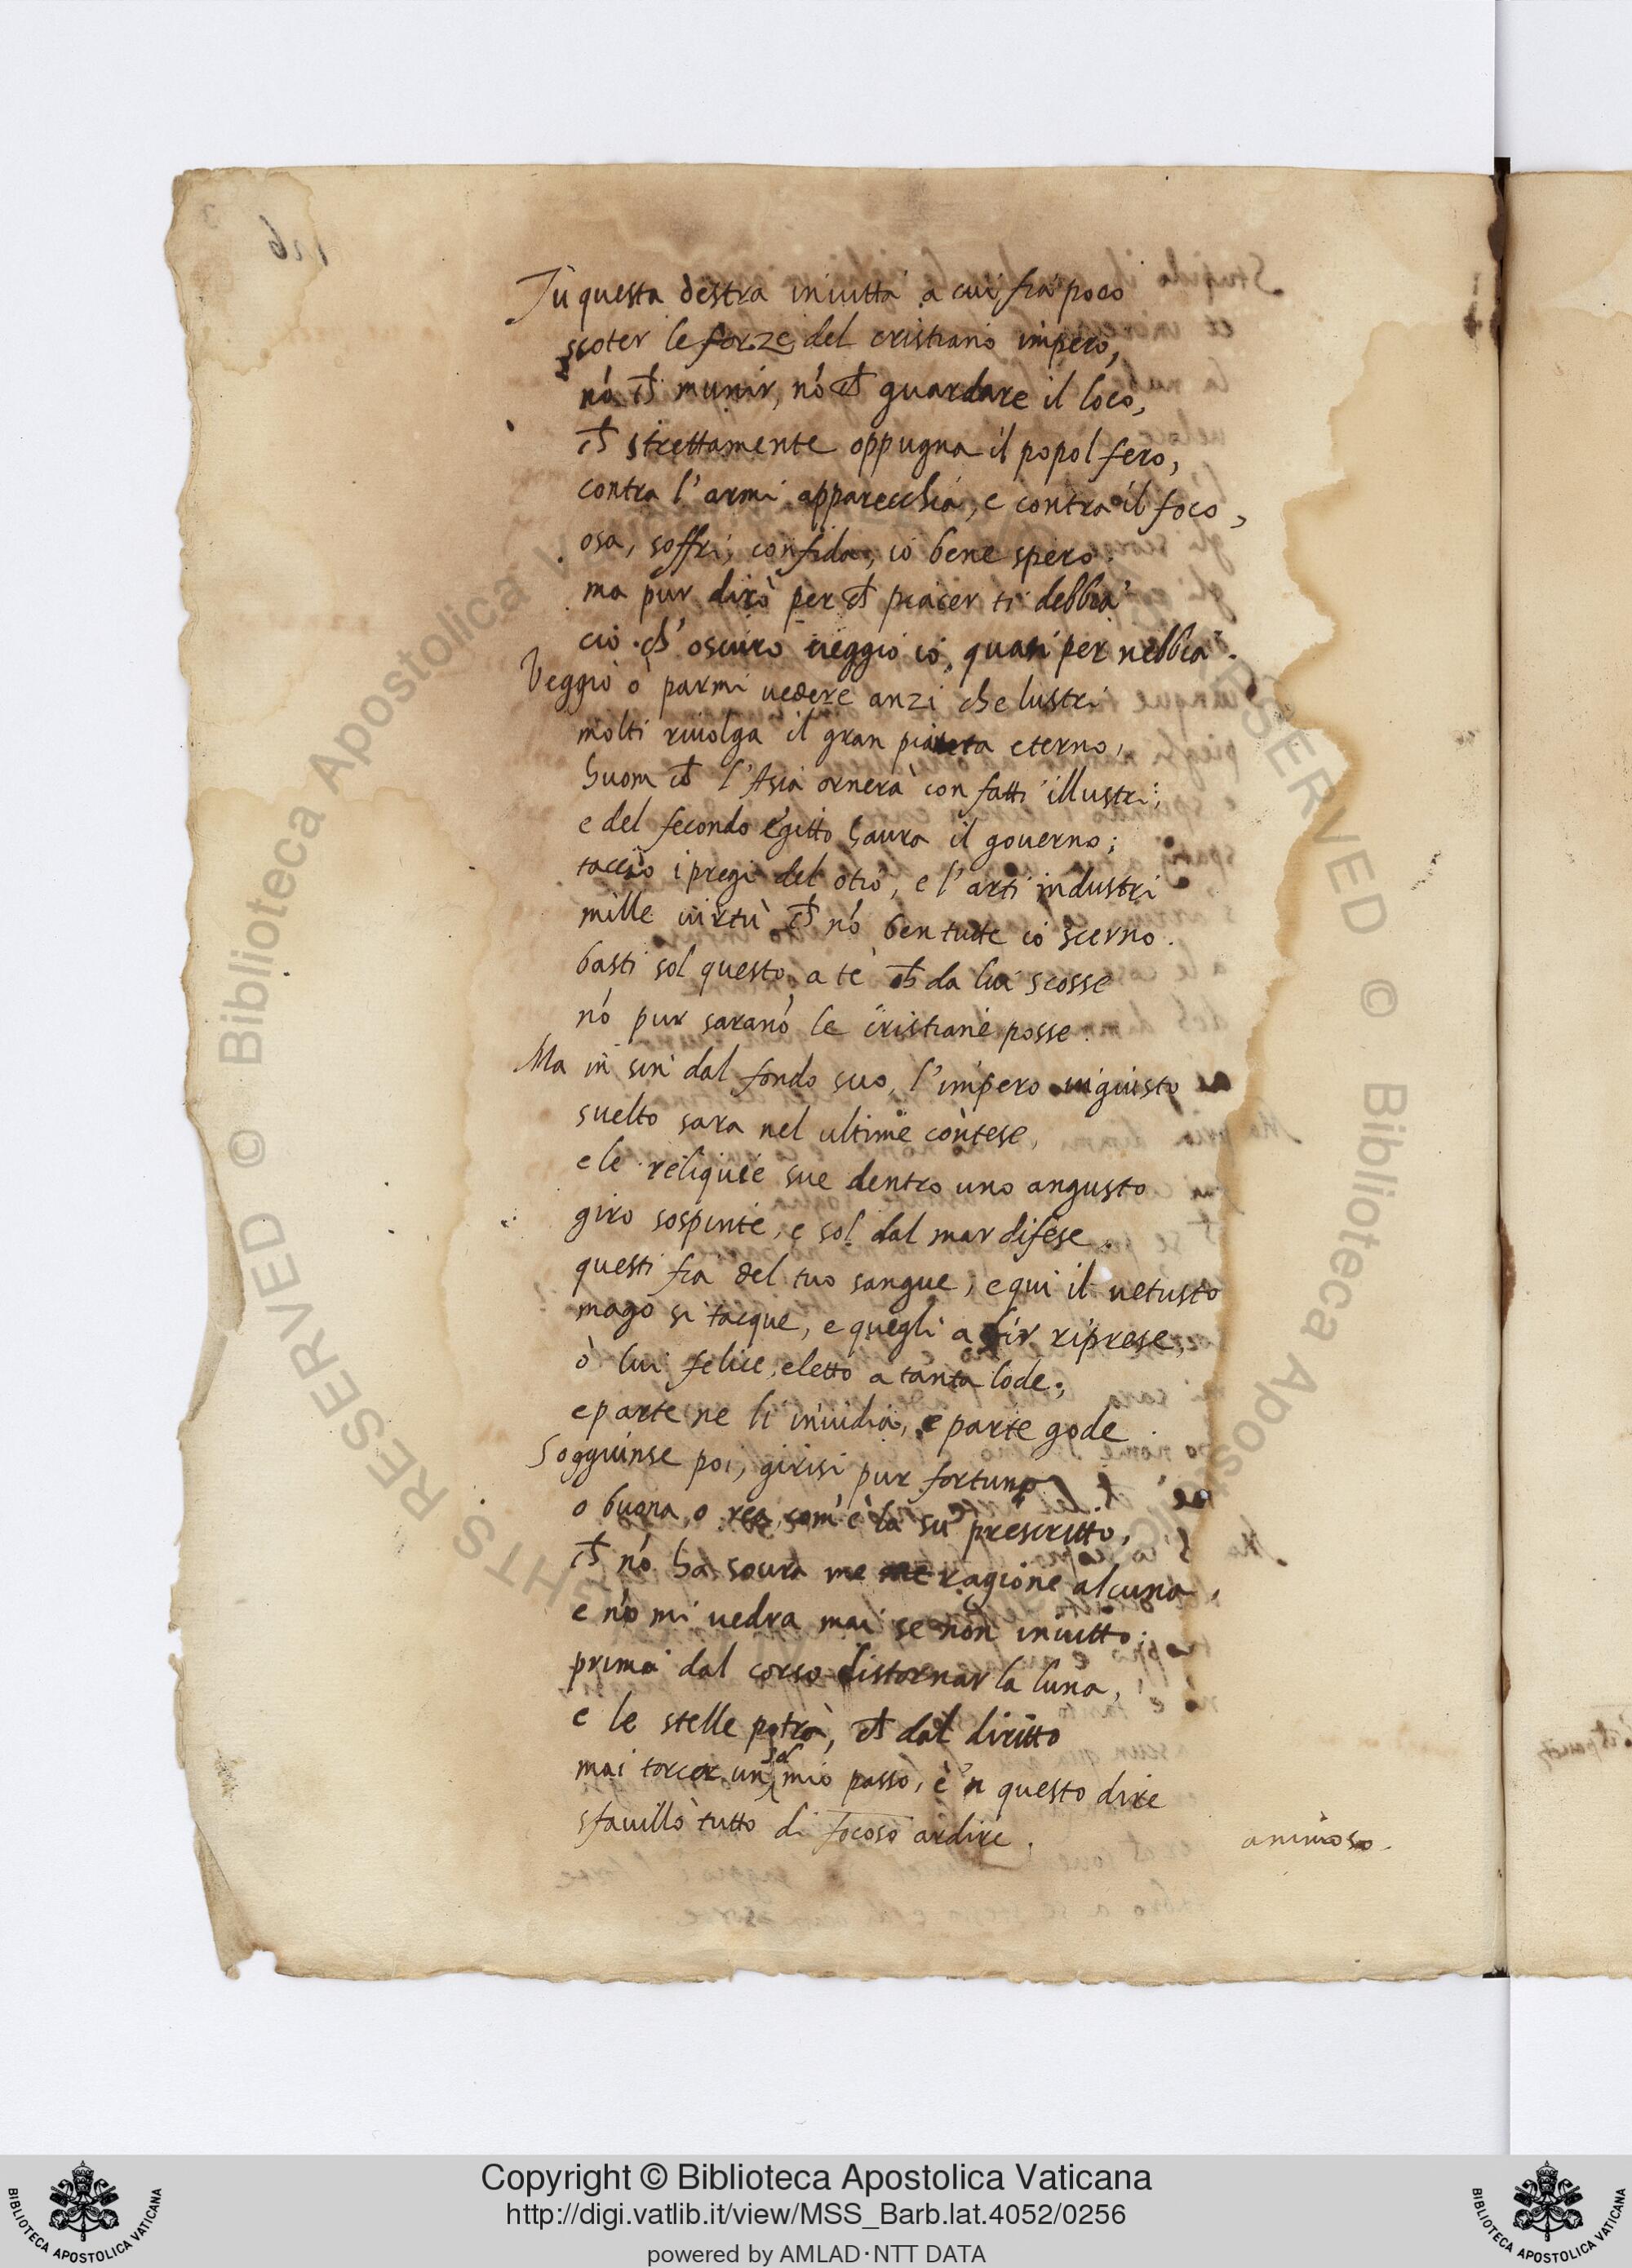 Tu questa destra inuitta a cui fia poco
scoter le forze del cristiano impero,
nó ch̄ munir, nó ch̄ guardare il loco,
ch̄ strettamente oppugna il popol fero,
contra l'armi apparecchia, e contra il foco,
osa, soffri, confida, io bene spero.
ma pur dirò per ch̄ piacer ti debbia
ciò ch' oscuro ueggio io, quasi per nebbia.
Veggio ò parmi uedere anzi che lustri
molti riuolga il gran pianeta eterno,
huom ch̄ l'Asia ornerà con fatti illustri;
e del fecondo egitto haura il gouerno;
taccio i pregi del otio, e l'arti industri
mille uirtù ch̄ nó ben tutte io scerno.
basti sol questo a te ch̄ da lui scosse
nó pur saranó le cristiane posse.
Ma in sin dal fondo suo, l'impero ingiusto
suelto sara nel ultime contese,
e le reliquie sue dentro uno angusto
giro sospinte, e sol dal mar difese.
questi fia del tuo sangue, e qui il uetusto
mago si tacque, e quegli a dir riprese,
ò lui felice, eletto a tanta lode;
e parte ne li inuidia, e parte gode.
Soggiunse poi, girisi pur fortuna
o buona, o rea, com' è la su prescritto,
ch̄ nó ha soura me ragione alcuna,
e nó mi uedra mai se non inuitto;
prima dal corso distornar la luna,
e le stelle potrà, ch̄ dal diritto
mai torcer un sol mio passo, è 'n questo dire
sfauillò tutto di focoso ardire.
animoso.
Copyright © Biblioteca Apostolica Vaticana
http://digi.vatlib.it/view/MSS_Barb.lat.4052/0256
powered by AMLAD·NTT DATA
BIBLIOTECA APOSTOLICA VATICANA
BIBLIOTECA APOSTOLICA VATICANA